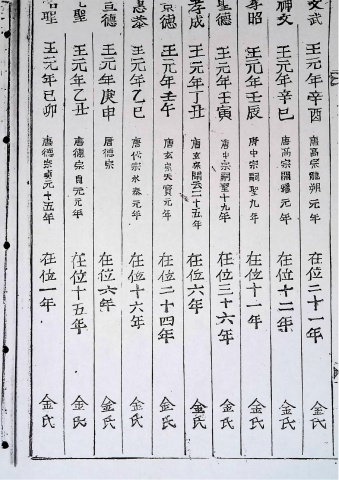 文武王元年辛酉 唐高宗龍朔元年 在位二十一年 金氏
神文王元年辛巳 唐高宗開耀元年 在位十二年 金氏
孝昭王元年壬辰 唐中宗嗣聖九年 在位十一年 金氏
聖德王元年壬寅 唐中宗嗣聖十九年 在位三十六年 金氏
孝成王元年丁丑 唐玄宗開元二十五年 在位六年 金氏
景德王元年壬午 唐玄宗天寶元年 在位二十四年 金氏
惠恭王元年乙巳 唐代宗永泰元年 在位十六年 金氏
宣德王元年庚申 唐德宗 在位六年 金氏
聖王元年乙丑 唐德宗元元年 在位十五年 金氏
聖王元年己卯 唐德宗貞元十五年 在位一年 金氏